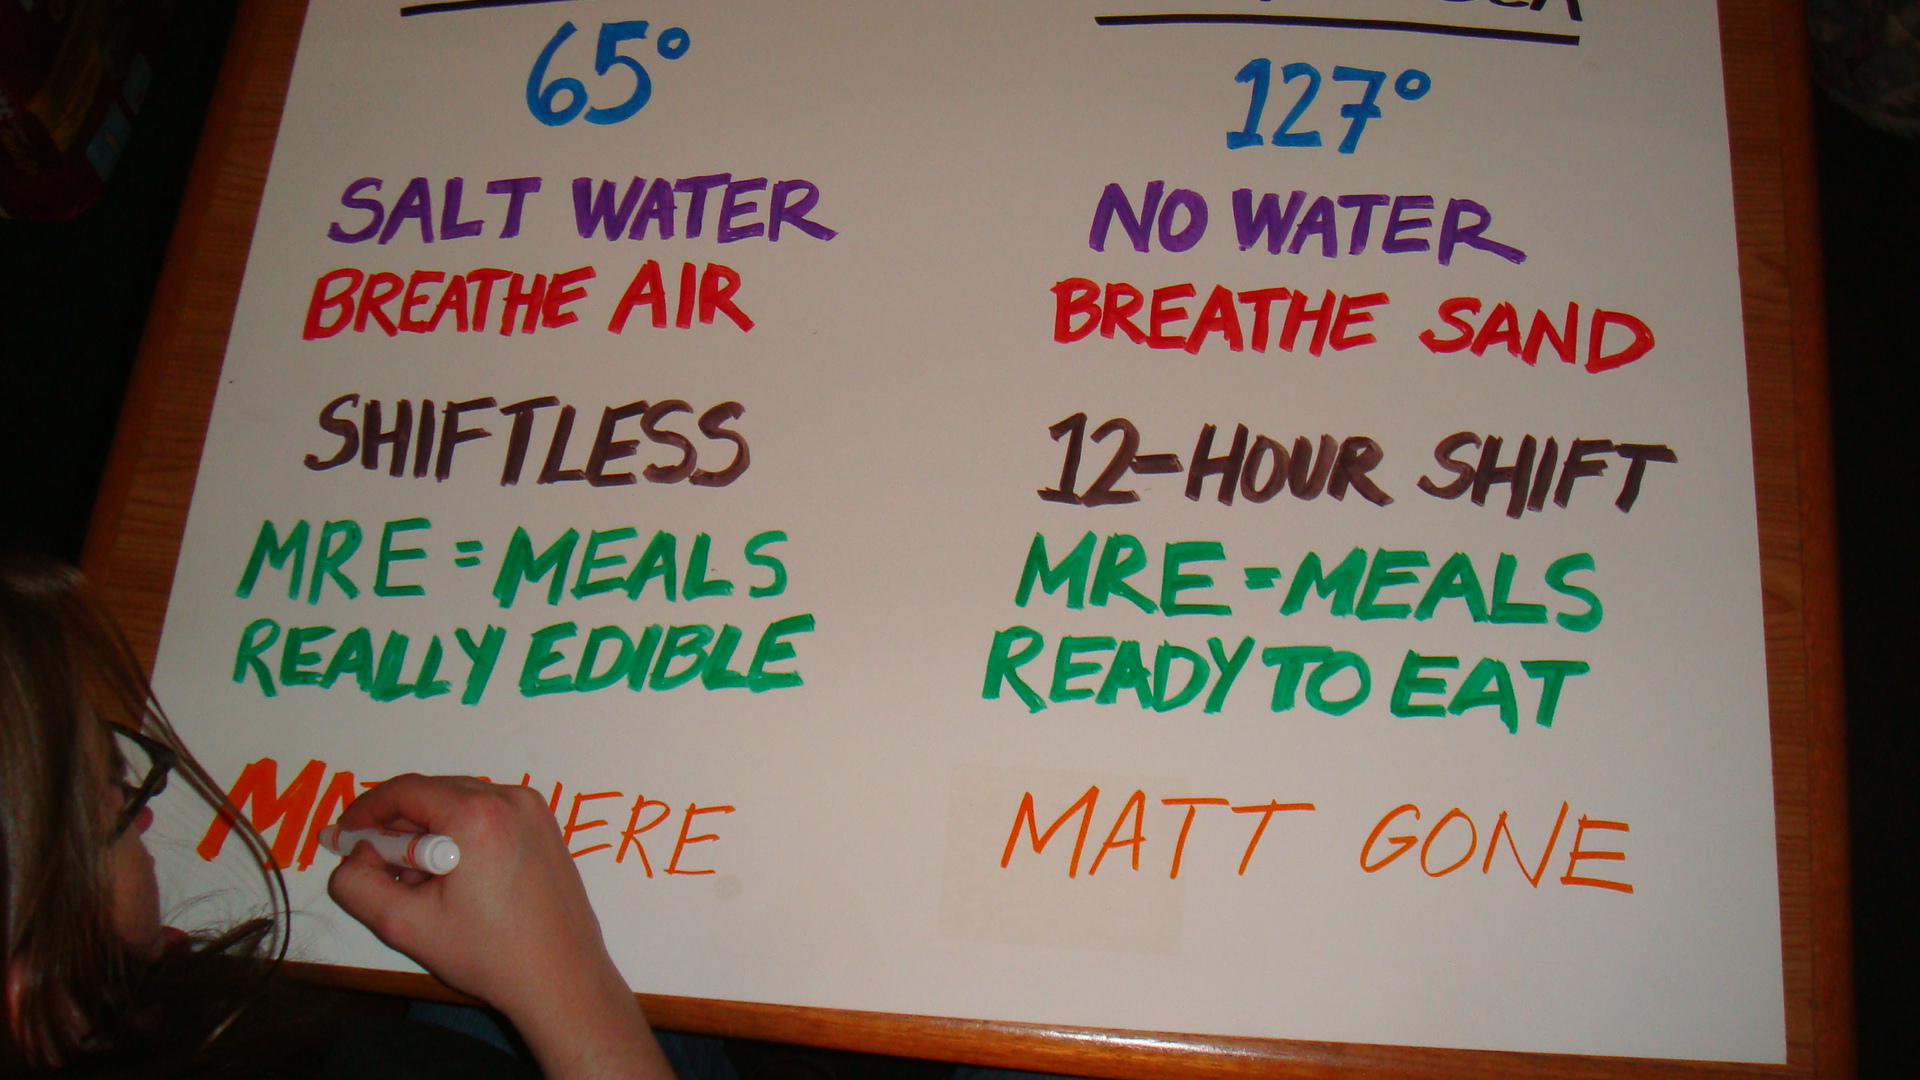 65°
127°
SALT WATER
NO WATER
BREATHE AIR
BREATHE SAND
SHIFTLESS
12-HOUR SHIFT
MRE = MEALS
REALLY EDIBLE
MRE = MEALS
READY TO EAT
HERE
MATT GONE